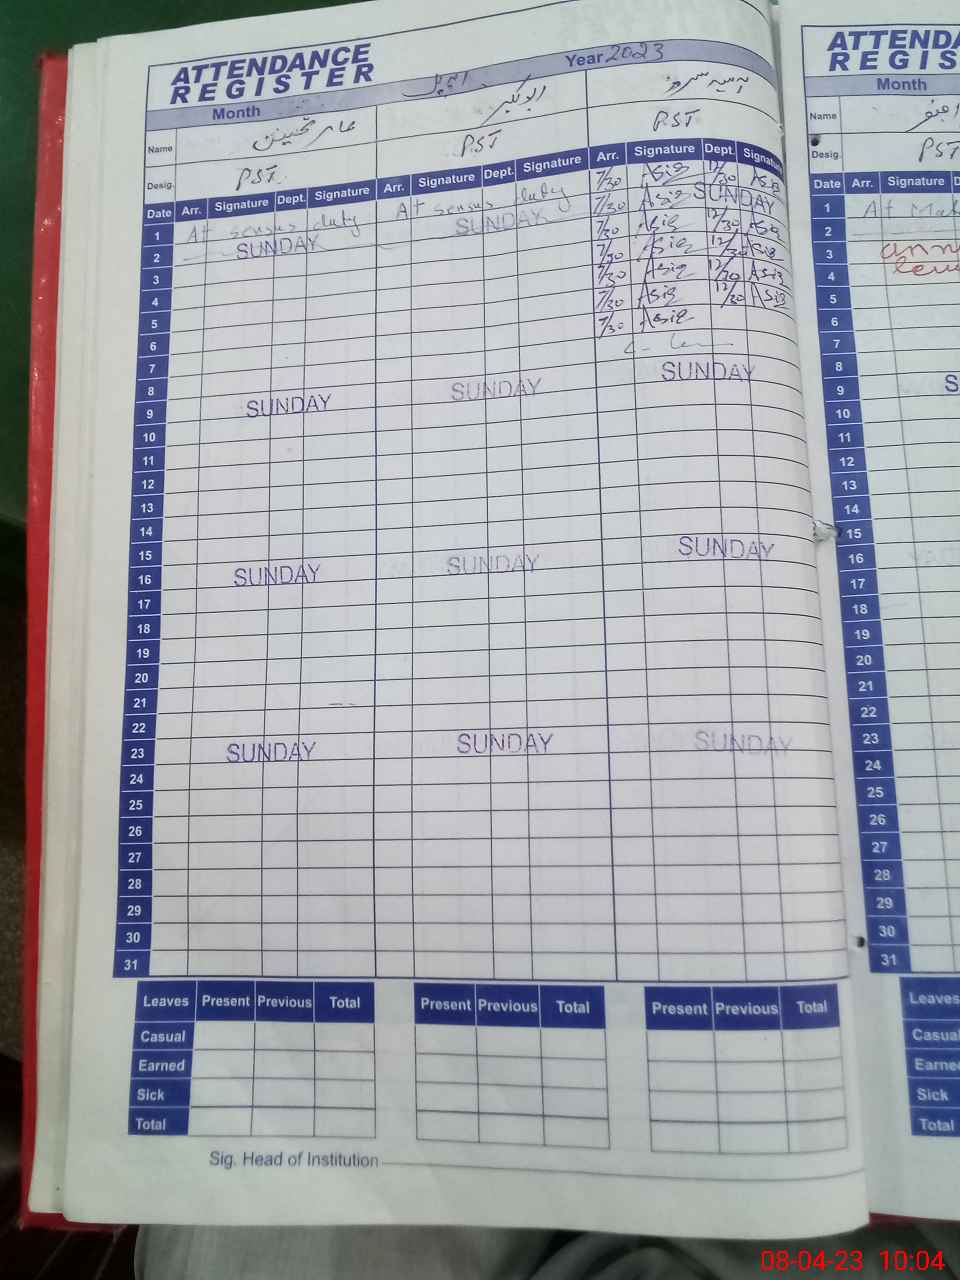 ATTENDANCE
REGISTER
Month اپریل Year 2023
Name
Desig. PST. PST PST
Date Arr. Signature Dept. Signature Arr. Signature Dept. Signature Arr. Signature Dept. Signature
1 At sensus duty At sensus duty 7/30 Asig 12/30 Asig
2 SUNDAY SUNDAY SUNDAY
7/30 Asig
3 7/30 Asig 12/30 Asig
4 7/30 Asig 12/30 Asig
5 7/30 Asig 12/30 Asig
6 7/30 Asig 12/30 Asig
7 7/30 Asig
8
9 SUNDAY SUNDAY SUNDAY
10
11
12
13
14
15
16 SUNDAY SUNDAY SUNDAY
17
18
19
20
21
22
23 SUNDAY SUNDAY SUNDAY
24
25
26
27
28
29
30
31
Leaves Present Previous Total Present Previous Total Present Previous Total
Casual
Earned
Sick
Total
Sig. Head of Institution
ATTENDA
REGIS
Month
Name
Desig. PST
Date Arr. Signature D
1 At
2
3
4
5
6
7
8
9 S
10
11
12
13
14
15
16
17
18
19
20
21
22
23
24
25
26
27
28
29
30
31
Leaves
Casual
Earne
Sick
Total
08-04-23 10:04